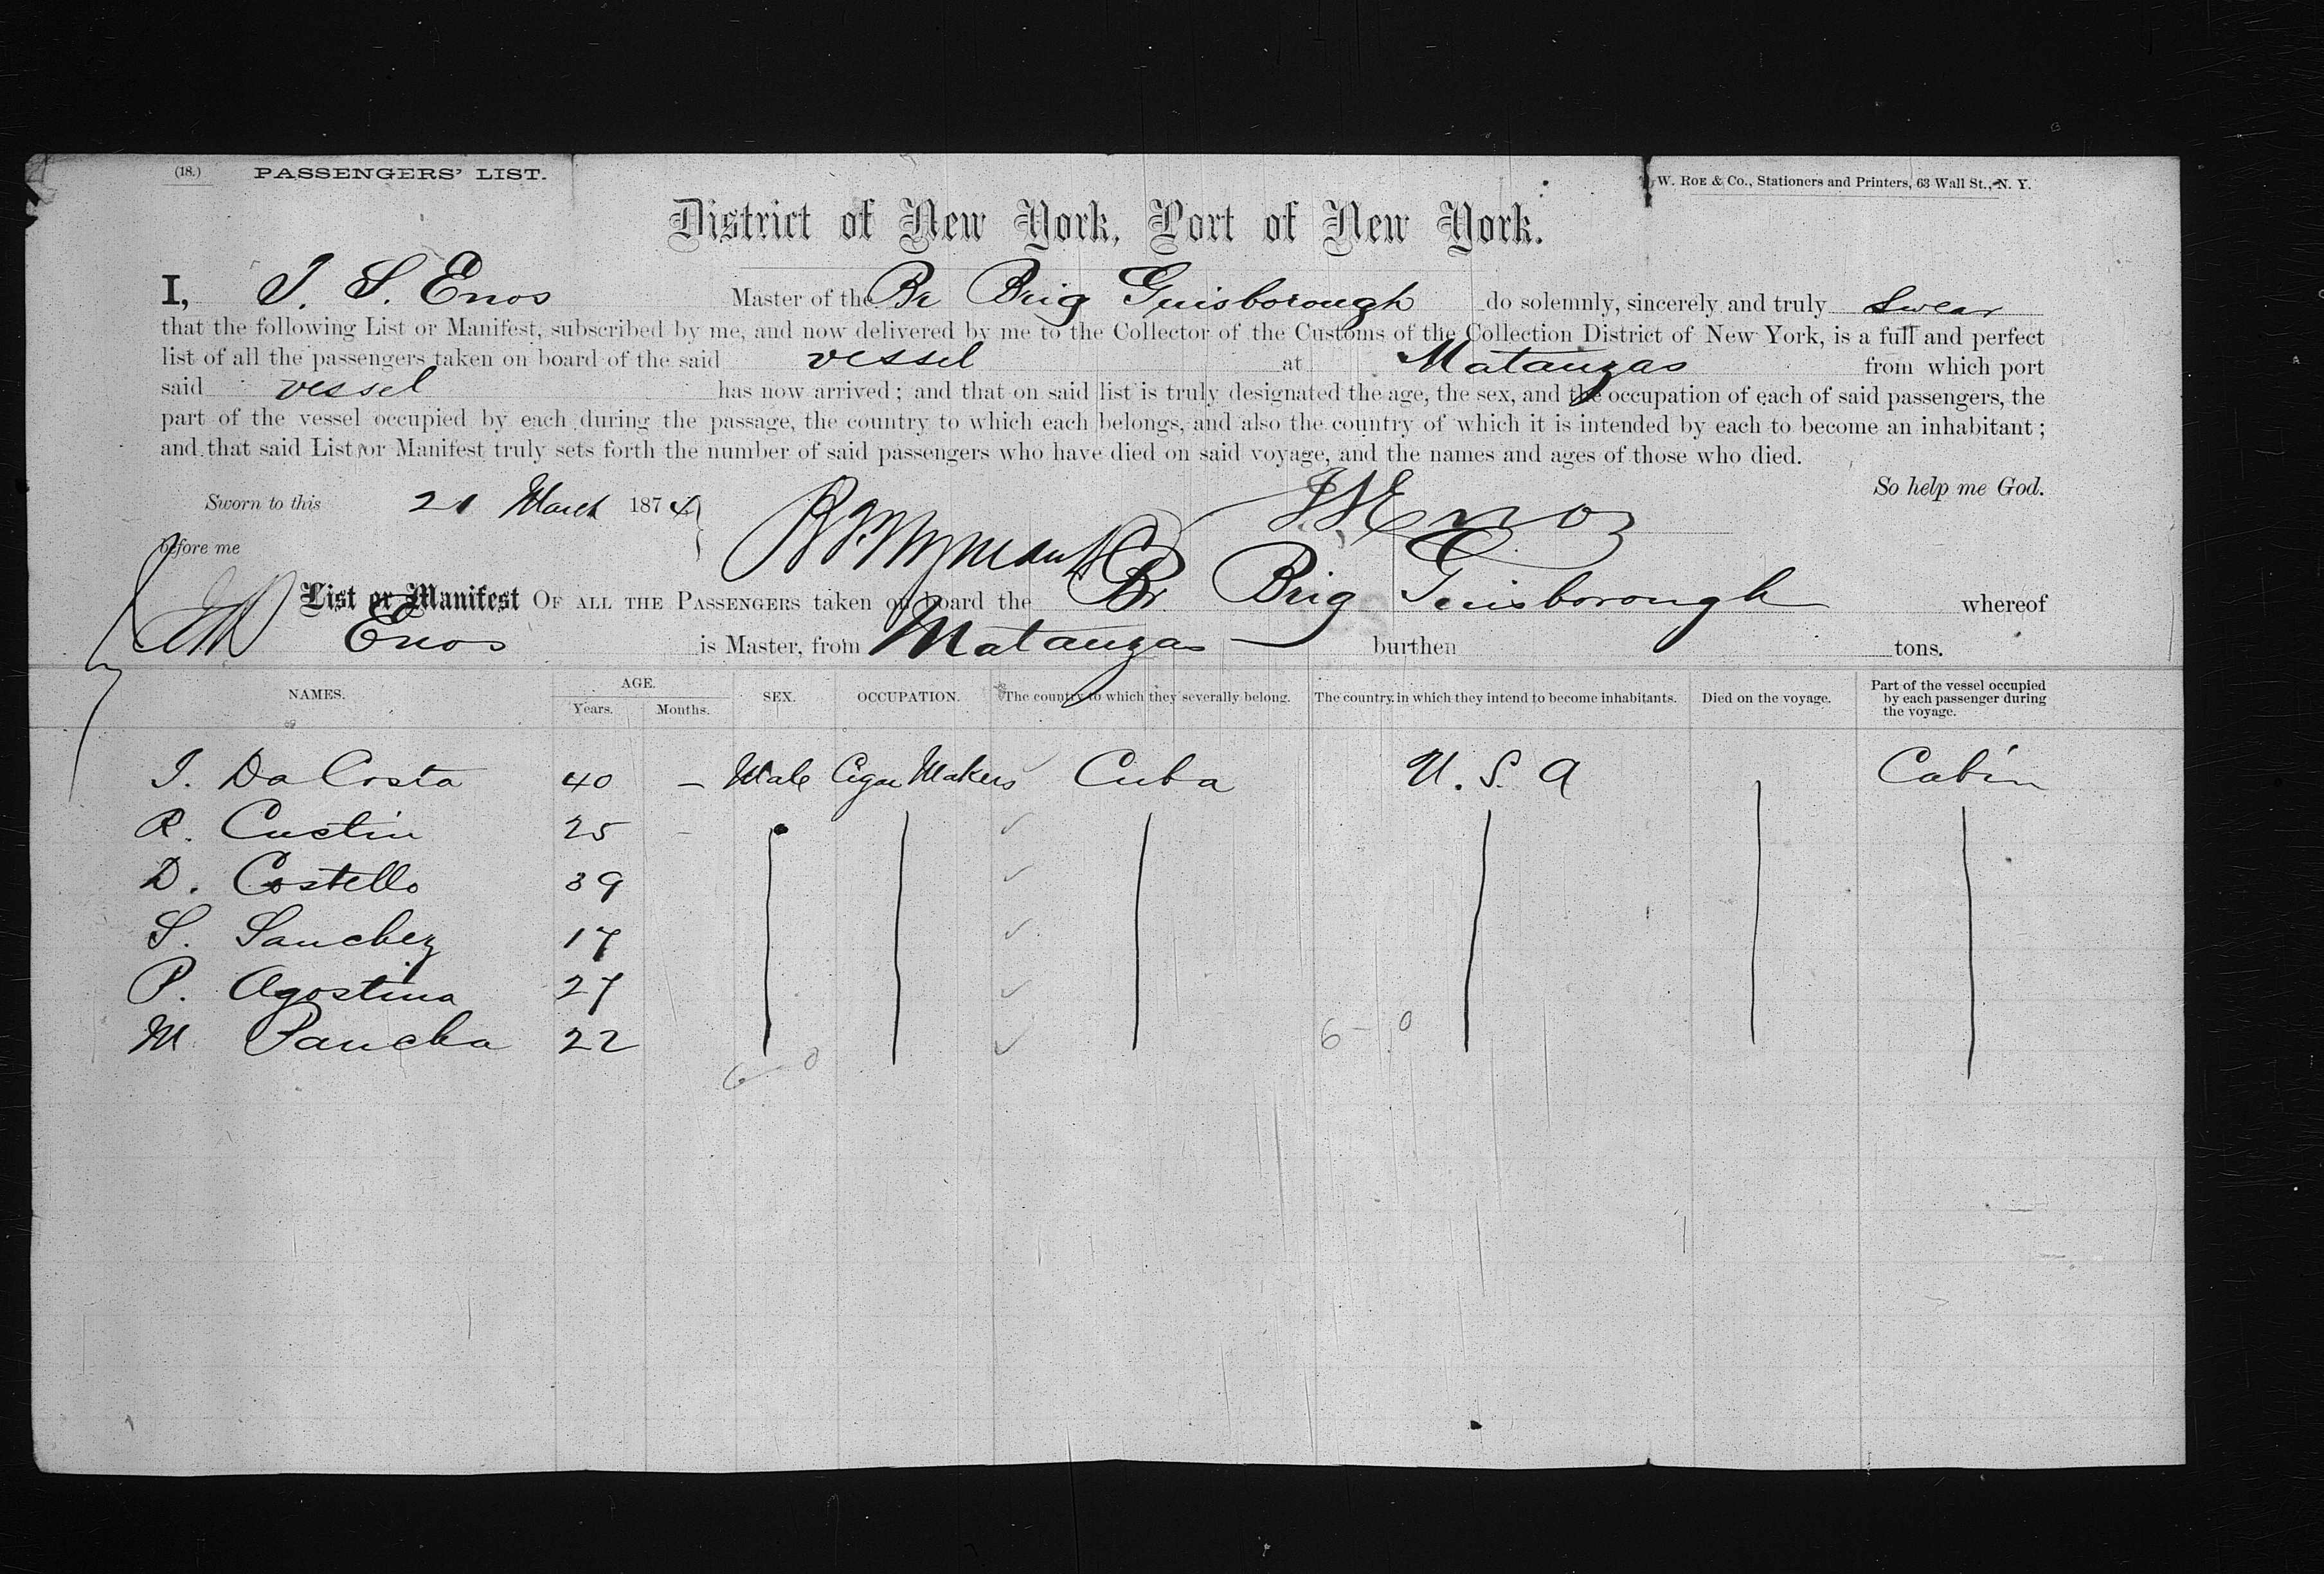 (18.) PASSENGERS' LIST.
W. ROE & Co., Stationers and Printers, 63 Wall St., N. Y.
District of New York, Port of New York.
I, J. S. Enos Master of the Br Brig Guisborough do solemnly, sincerely and truly swear
that the following List or Manifest, subscribed by me, and now delivered by me to the Collector of the Customs of the Collection District of New York, is a full and perfect
list of all the passengers taken on board of the said vessel at Matanzas from which port
said vessel has now arrived; and that on said list is truly designated the age, the sex, and the occupation of each of said passengers, the
part of the vessel occupied by each during the passage, the country to which each belongs, and also the country of which it is intended by each to become an inhabitant;
and that said List or Manifest truly sets forth the number of said passengers who have died on said voyage, and the names and ages of those who died.
So help me God.
Sworn to this 21 March 1874
J S Enos
before me
List or Manifest OF ALL THE PASSENGERS taken on board the Br Brig Guisborough whereof
Enos is Master, from Matanzas burthen tons.
NAMES. AGE. Years. Months. SEX. OCCUPATION. The country to which they severally belong. The country in which they intend to become inhabitants. Died on the voyage. Part of the vessel occupied by each passenger during the voyage.
J. Da Costa 40 – Male Cigar Makers Cuba U. S. A Cabin
R. Custin 25 –
D. Costello 39
S. Sanchez 17
P. Agostina 27
M Pancha 22
6 – 0
6 – 0